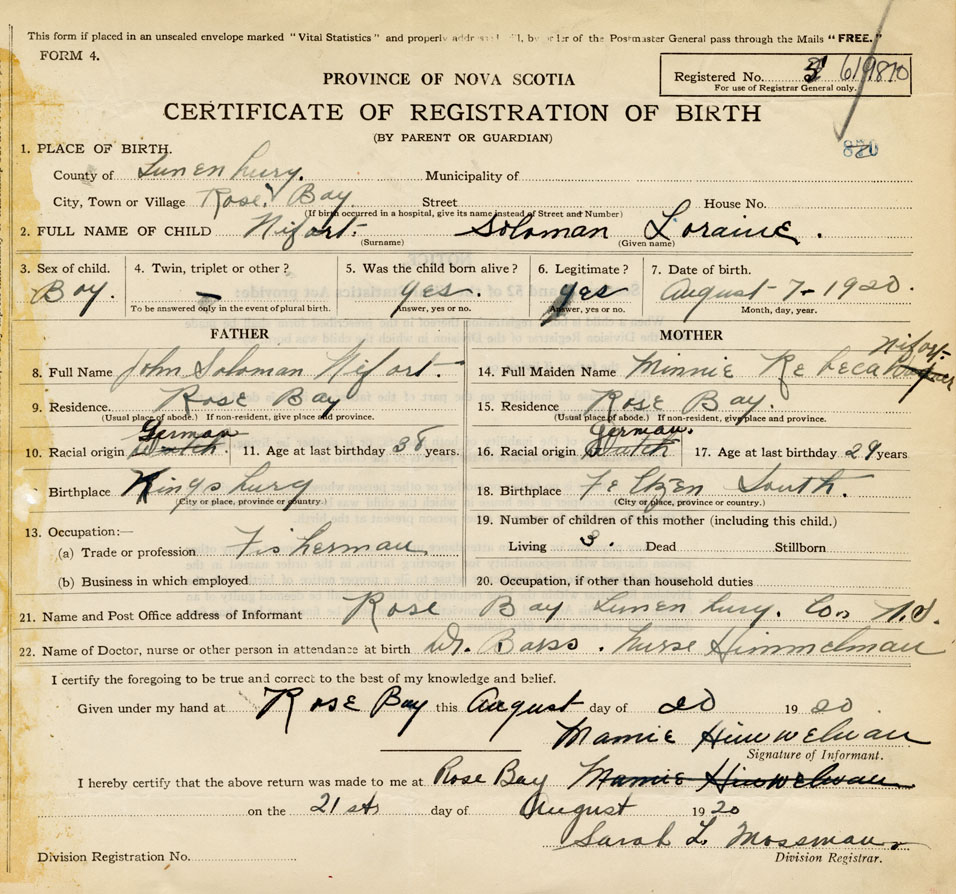 This form if placed in an unsealed envelope marked "Vital Statistics" and properly addressed will, by order of the Postmaster General pass through the Mails "FREE."
FORM 4.
Registered No.
For use of Registrar General only.
PROVINCE OF NOVA SCOTIA
CERTIFICATE OF REGISTRATION OF BIRTH
(BY PARENT OR GUARDIAN)
1. PLACE OF BIRTH.
County of Lunenburg. Municipality of
City, Town or Village Rose Bay Street House No.
(If birth occurred in a hospital, give its name instead of Street and Number)
2. FULL NAME OF CHILD Nifort Soloman Loraine.
(Surname) (Given name)
3. Sex of child. 4. Twin, triplet or other? 5. Was the child born alive? 6. Legitimate? 7. Date of birth.
Boy. – yes. yes August 7 - 1920.
To be answered only in the event of plural birth. Answer, yes or no. Answer, yes or no. Month, day, year.
FATHER MOTHER
8. Full Name John Soloman Nifort. 14. Full Maiden Name Minnie Rebeca Nifort
9. Residence. Rose Bay 15. Residence Rose Bay.
(Usual place of abode.) If non-resident, give place and province. (Usual place of abode.) If non-resident, give place and province.
10. Racial origin Dutch. German 11. Age at last birthday 38 years. 16. Racial origin Dutch German. 17. Age at last birthday 29 years
Birthplace Kingsburg 18. Birthplace Feltzen South.
(City or place, province or country.) (City or place, province or country.)
13. Occupation:— 19. Number of children of this mother (including this child.)
(a) Trade or profession Fisherman Living 3. Dead Stillborn
(b) Business in which employed 20. Occupation, if other than household duties
21. Name and Post Office address of Informant Rose Bay Lunenburg. Co. N.S.
22. Name of Doctor, nurse or other person in attendance at birth Dr. Barss. Nurse Himmelman
I certify the foregoing to be true and correct to the best of my knowledge and belief.
Given under my hand at Rose Bay this August day of 20 1920
Mamie Himmelman
Signature of Informant.
I hereby certify that the above return was made to me at Rose Bay Mamie Himmelman
on the 21st day of August 1920
Sarah L. Mossman
Division Registration No. Division Registrar.